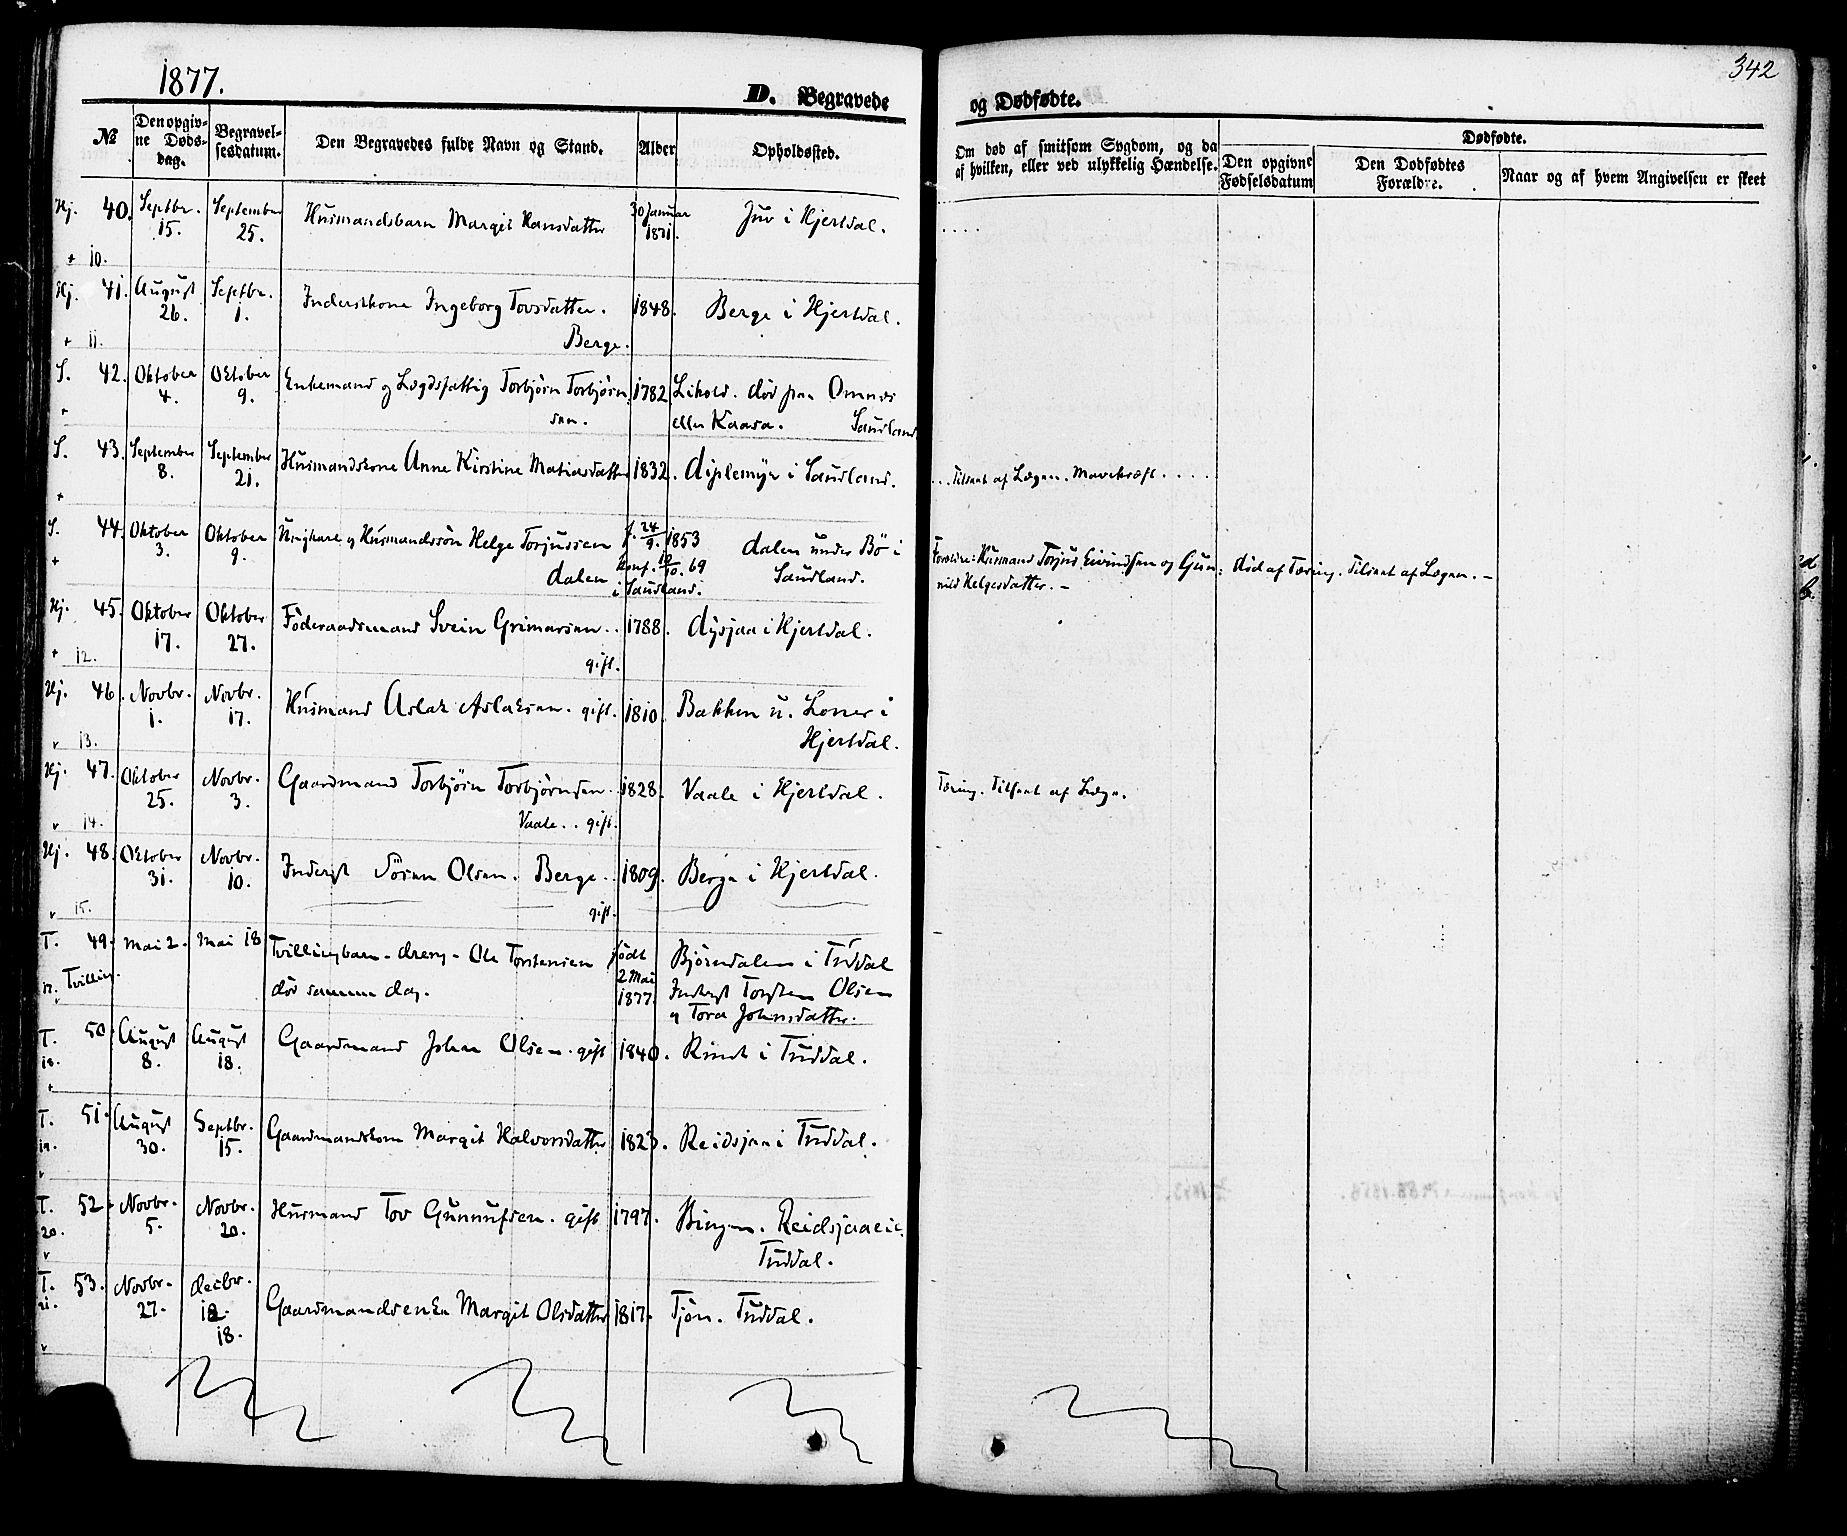 1877.
D. Begravede
og Dødfødte.
342
№
Den opgiv-
ne Døds-
dag.
Begravel-
sesdatum.
Den Begravedes fulde Navn og Stand.
Alder
Opholdssted.
Om død af smitsom Sygdom, og da
af hvilken, eller ved ulykkelig Hændelse.
Dødfødte.
Den opgivne
Fødselsdatum
Den Dødfødtes
Forældre.
Naar og af hvem Angivelsen er skeet
Hj. 40. Septbr. September Husmandsbarn Margit Hansdatter 30 Januar Juv i Hjertdal.
15. 25. 1871.
+ 10.
Hj. 41. August Septbr. Inderstkone Ingeborg Tovsdatter. 1848. Berge i Hjertdal.
26. 1. Berge.
+ 11.
S. 42. Oktober Oktober Enkemand og Lægdsfattig Torbjørn Torbjørn 1782 død paa Omnes
4. 9. sen. eller Kaasa. Saudland
+
S. 43. September September Husmandskone Anne Kirstine Matiasdatter 1832. i Saudland. Tilseet af Lægen. Mavekræft.
8. 21.
+
S. 44. Oktober Oktober Ungkarl og Husmandssøn Helge Torjussen f. 24/9. 1853 dalen under Bø i
3. 9. dalen konf. 10/10. 69 Saudland.
+ i Saudland.
Forældre: Husmand Torjus Eivindsen og Gun: død af Tæring. Tilseet af Lægen. –
nild Helgesdatter. –
Hj. 45. Oktober Oktober Föderaadsmand Svein Grimarsen. 1788. dysjaa i Hjertdal.
17. 27. gift.
+ 12.
Hj. 46. Novbr. Novbr. Husmand Aslak Aslaksen. gift. 1810. Bakken u. Loner i
1. 17. Hjertdal.
v 13.
Hj. 47. Oktober Novbr. Gaardmand Torbjörn Torbjörnsen. 1828. Vaale i Hjertdal. Tæring. Tilseet af Læge.
25. 3. Vaale. . gift.
v 14.
Hj. 48. Oktober Novbr. Inderst Sören Olsen. Berge. 1809. Berge i Hjertdal.
31. 10. gift.
v 15.
T. 49. Mai 2. Mai 18 Tvillingbarn – dreng – Ole Torstensen født Bjørndalen i Tuddal
17. Tvilling. död samme dag. 2 Mai Inderst Torsten Olsen
v 1877. og Tora Johnsdatter.
T. 50. August August Gaardmand John Olsen. gift 1840. Rinde i Tuddal.
18. 8. 18.
+
T. 51. August Septbr. Gaardmandskone Margit Halvorsdatter 1823. Reidsjaa i Tuddal.
19. 30. 15.
v
T. 52. Novbr. Novbr. Husmand Tov Gunnufsen. gift 1797. Bingen. Reidsjaaeie.
20. 5. 20. Tuddal.
v
T. 53. Novbr. decbr. Gaardmandsenke Margit Olsdatter 1817. Tjön. Tuddal.
21. 27. 18.
v